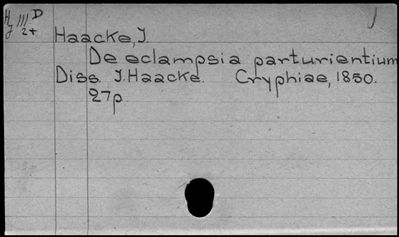 H III D
J 24
Haacke, J.
De eclampsia parturientium
Diss. J. Haacke. Gryphiae, 1850.
27p.